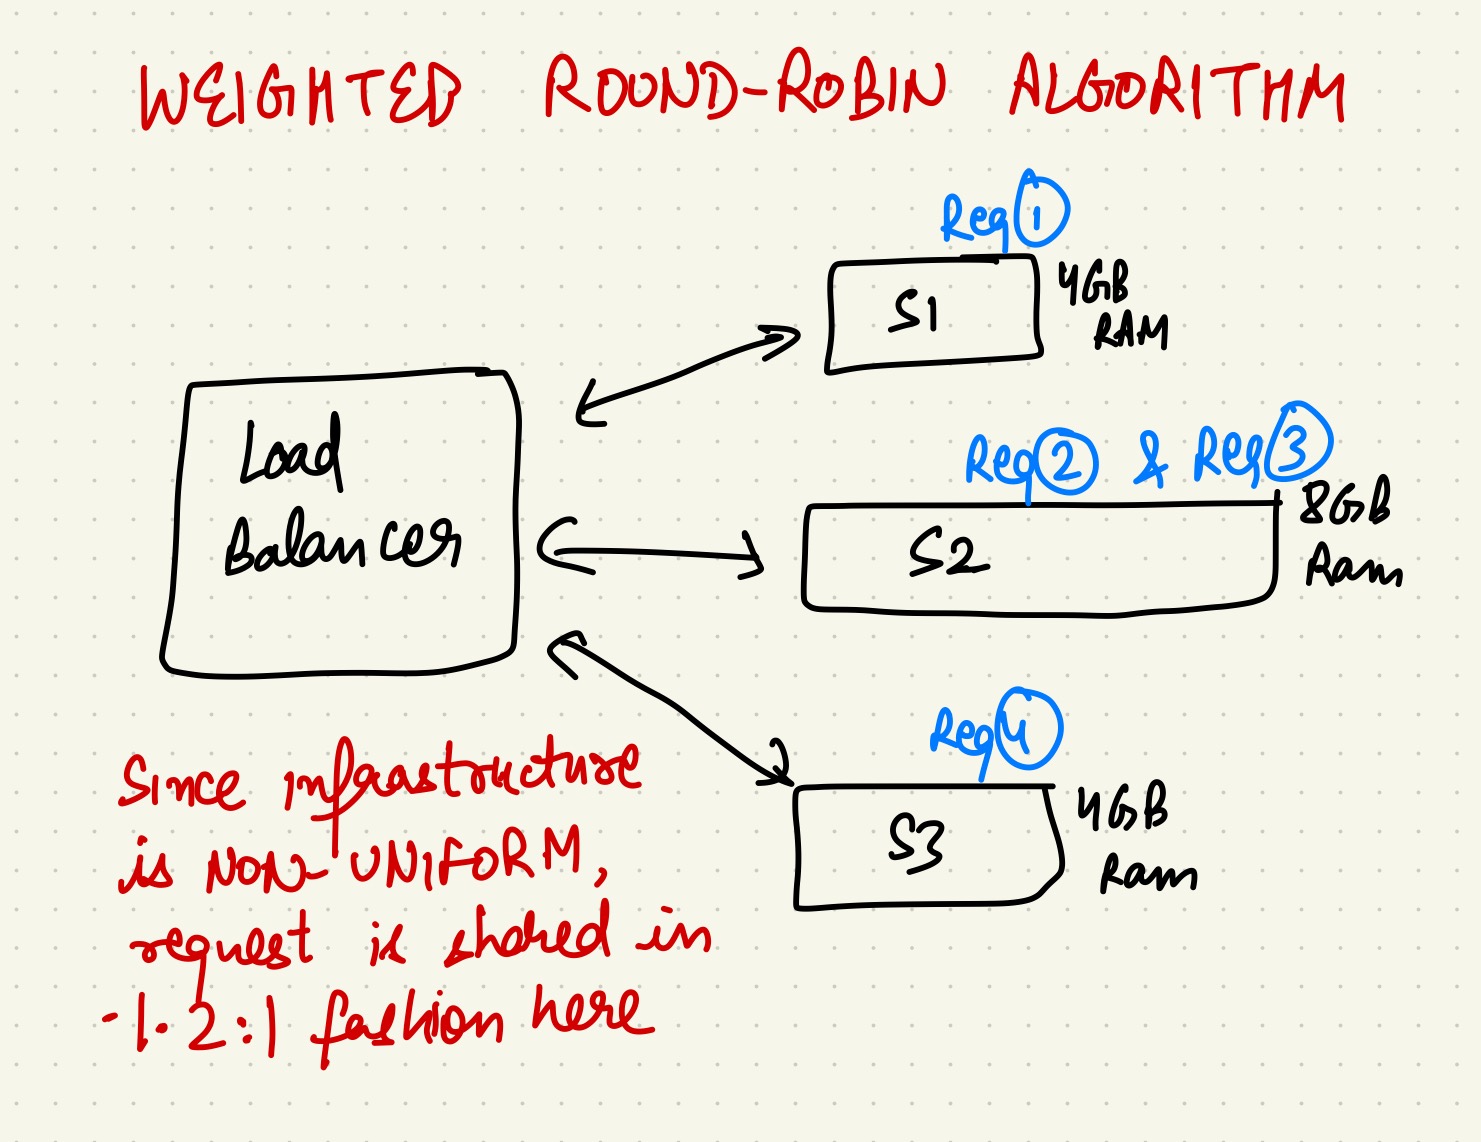 WEIGHTED ROUND-ROBIN ALGORITHM
Req 1
S1
4GB
RAM
Load
Balancer
Req 2 & Req 3
S2
8GB
Ram
Req 4
S3
4GB
Ram
Since infrastructure
is NON-UNIFORM,
request is shared in
1:2:1 fashion here